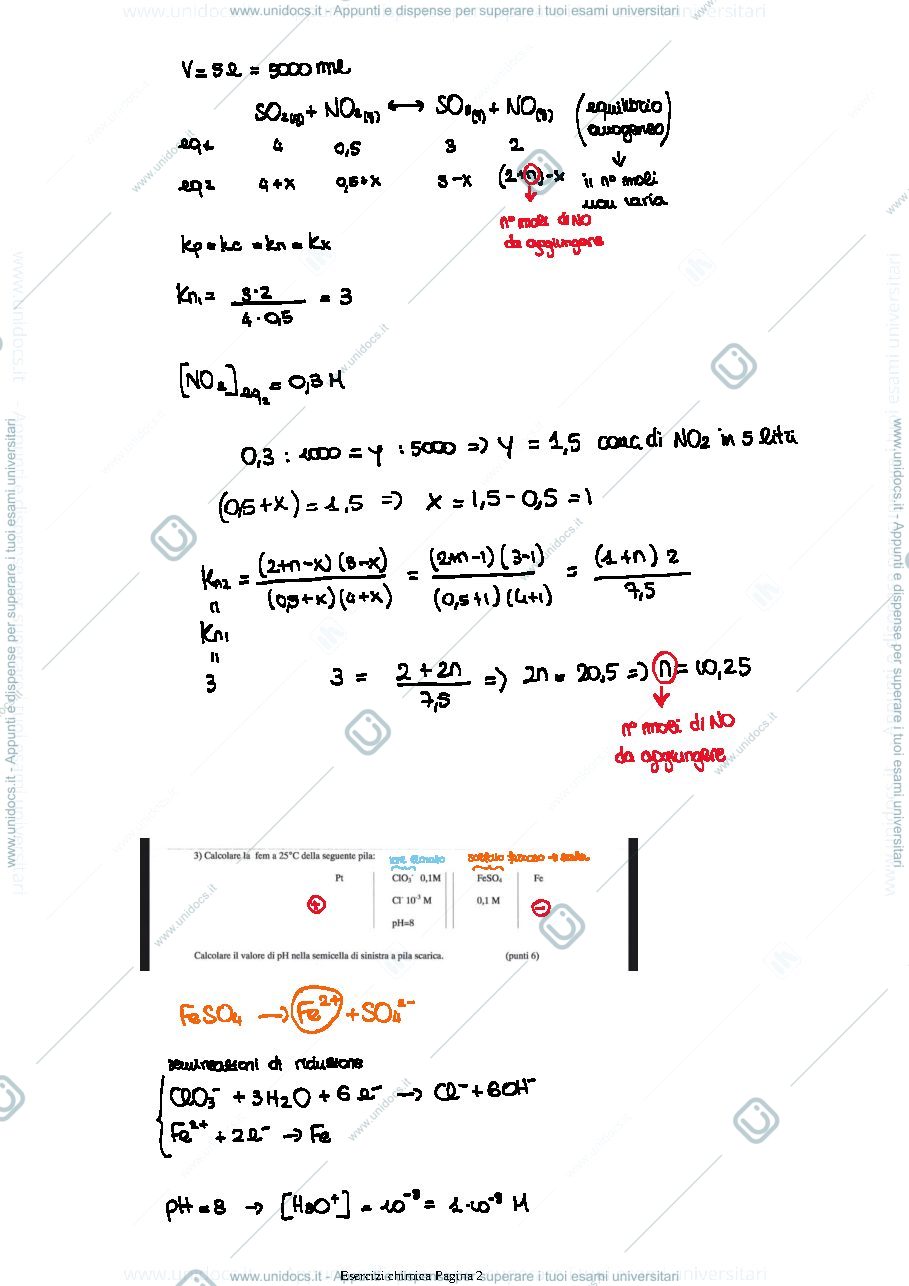 www.unidocs.it - Appunti e dispense per superare i tuoi esami universitari
V = 5 l = 5000 ml
SO₂(g) + NO₂(g) ⟷ SO₃(g) + NO(g) (equilibrio omogeneo)
eq1 4 0,5 3 2
↓
eq2 4+x 0,5+x 3-x (2+n)-x il n° moli non varia
n° moli di NO
da aggiungere
Kp = Kc = Kn = Kx
Kn₁ = 3·2 / 4·0,5 = 3
[NO₂]eq₂ = 0,3 M
0,3 : 1000 = y : 5000 => y = 1,5 conc. di NO₂ in 5 litri
(0,5+x) = 1,5 => x = 1,5 - 0,5 = 1
Kn2 = (2+n-x)(3-x) / (0,5+x)(4+x) = (2+n-1)(3-1) / (0,5+1)(4+1) = (1+n) 2 / 7,5
=
Kn₁
=
3
3 = 2+2n / 7,5 => 2n = 20,5 => n = 10,25
n° moli di NO
da aggiungere
3) Calcolare la fem a 25°C della seguente pila: ione clorato
Pt ClO₃⁻ 0,1M FeSO₄ Fe
+ Cl⁻ 10⁻³ M 0,1 M -
pH=8
Calcolare il valore di pH nella semicella di sinistra a pila scarica. (punti 6)
FeSO₄ → Fe²⁺ + SO₄²⁻
semireazioni di riduzione
ClO₃⁻ + 3H₂O + 6e⁻ → Cl⁻ + 6OH⁻
Fe²⁺ + 2e⁻ → Fe
pH = 8 → [H₃O⁺] = 10⁻⁸ = 1·10⁻⁸ M
Esercizi chimica Pagina 2
www.unidocs.it - Appunti e dispense per superare i tuoi esami universitari